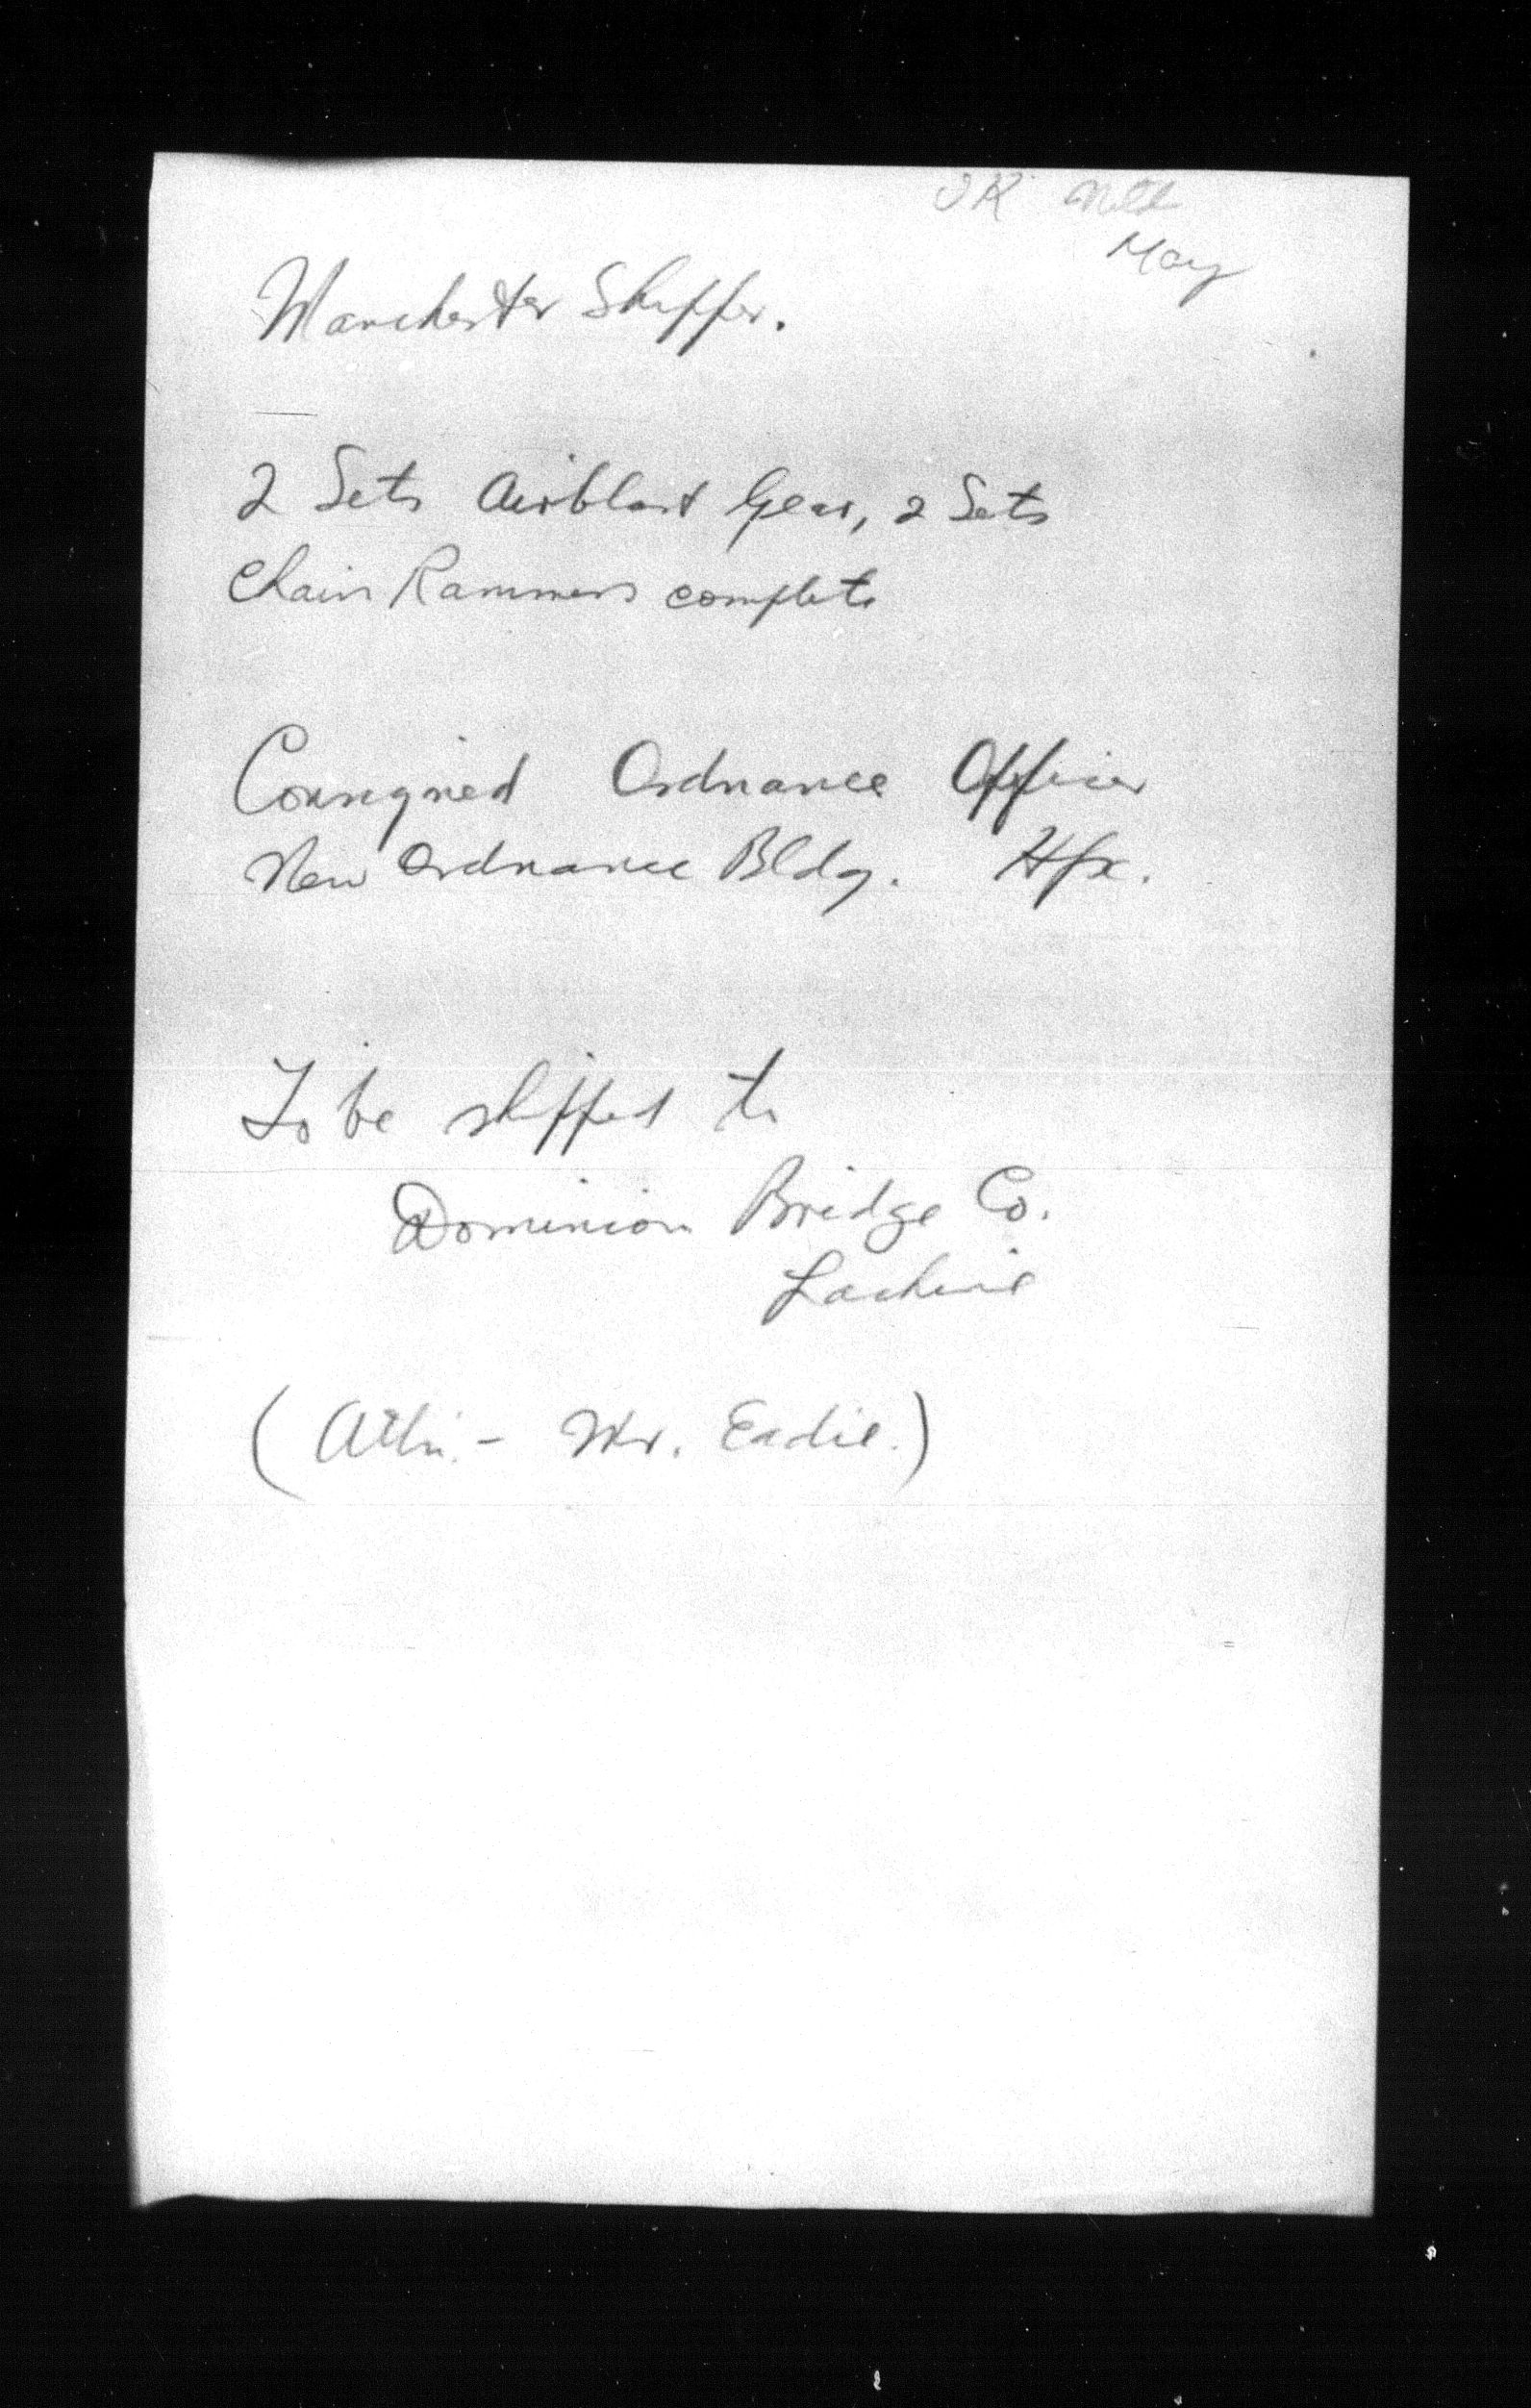 May
Manchester Shipper.
2 Sets Airblast Gear, 2 Sets
Chain Rammers complete
Consigned Ordnance Officer
New Ordnance Bldg. Hfx.
To be shipped to
Dominion Bridge Co.
Lachine
(Attn. - Mr. Eadie.)